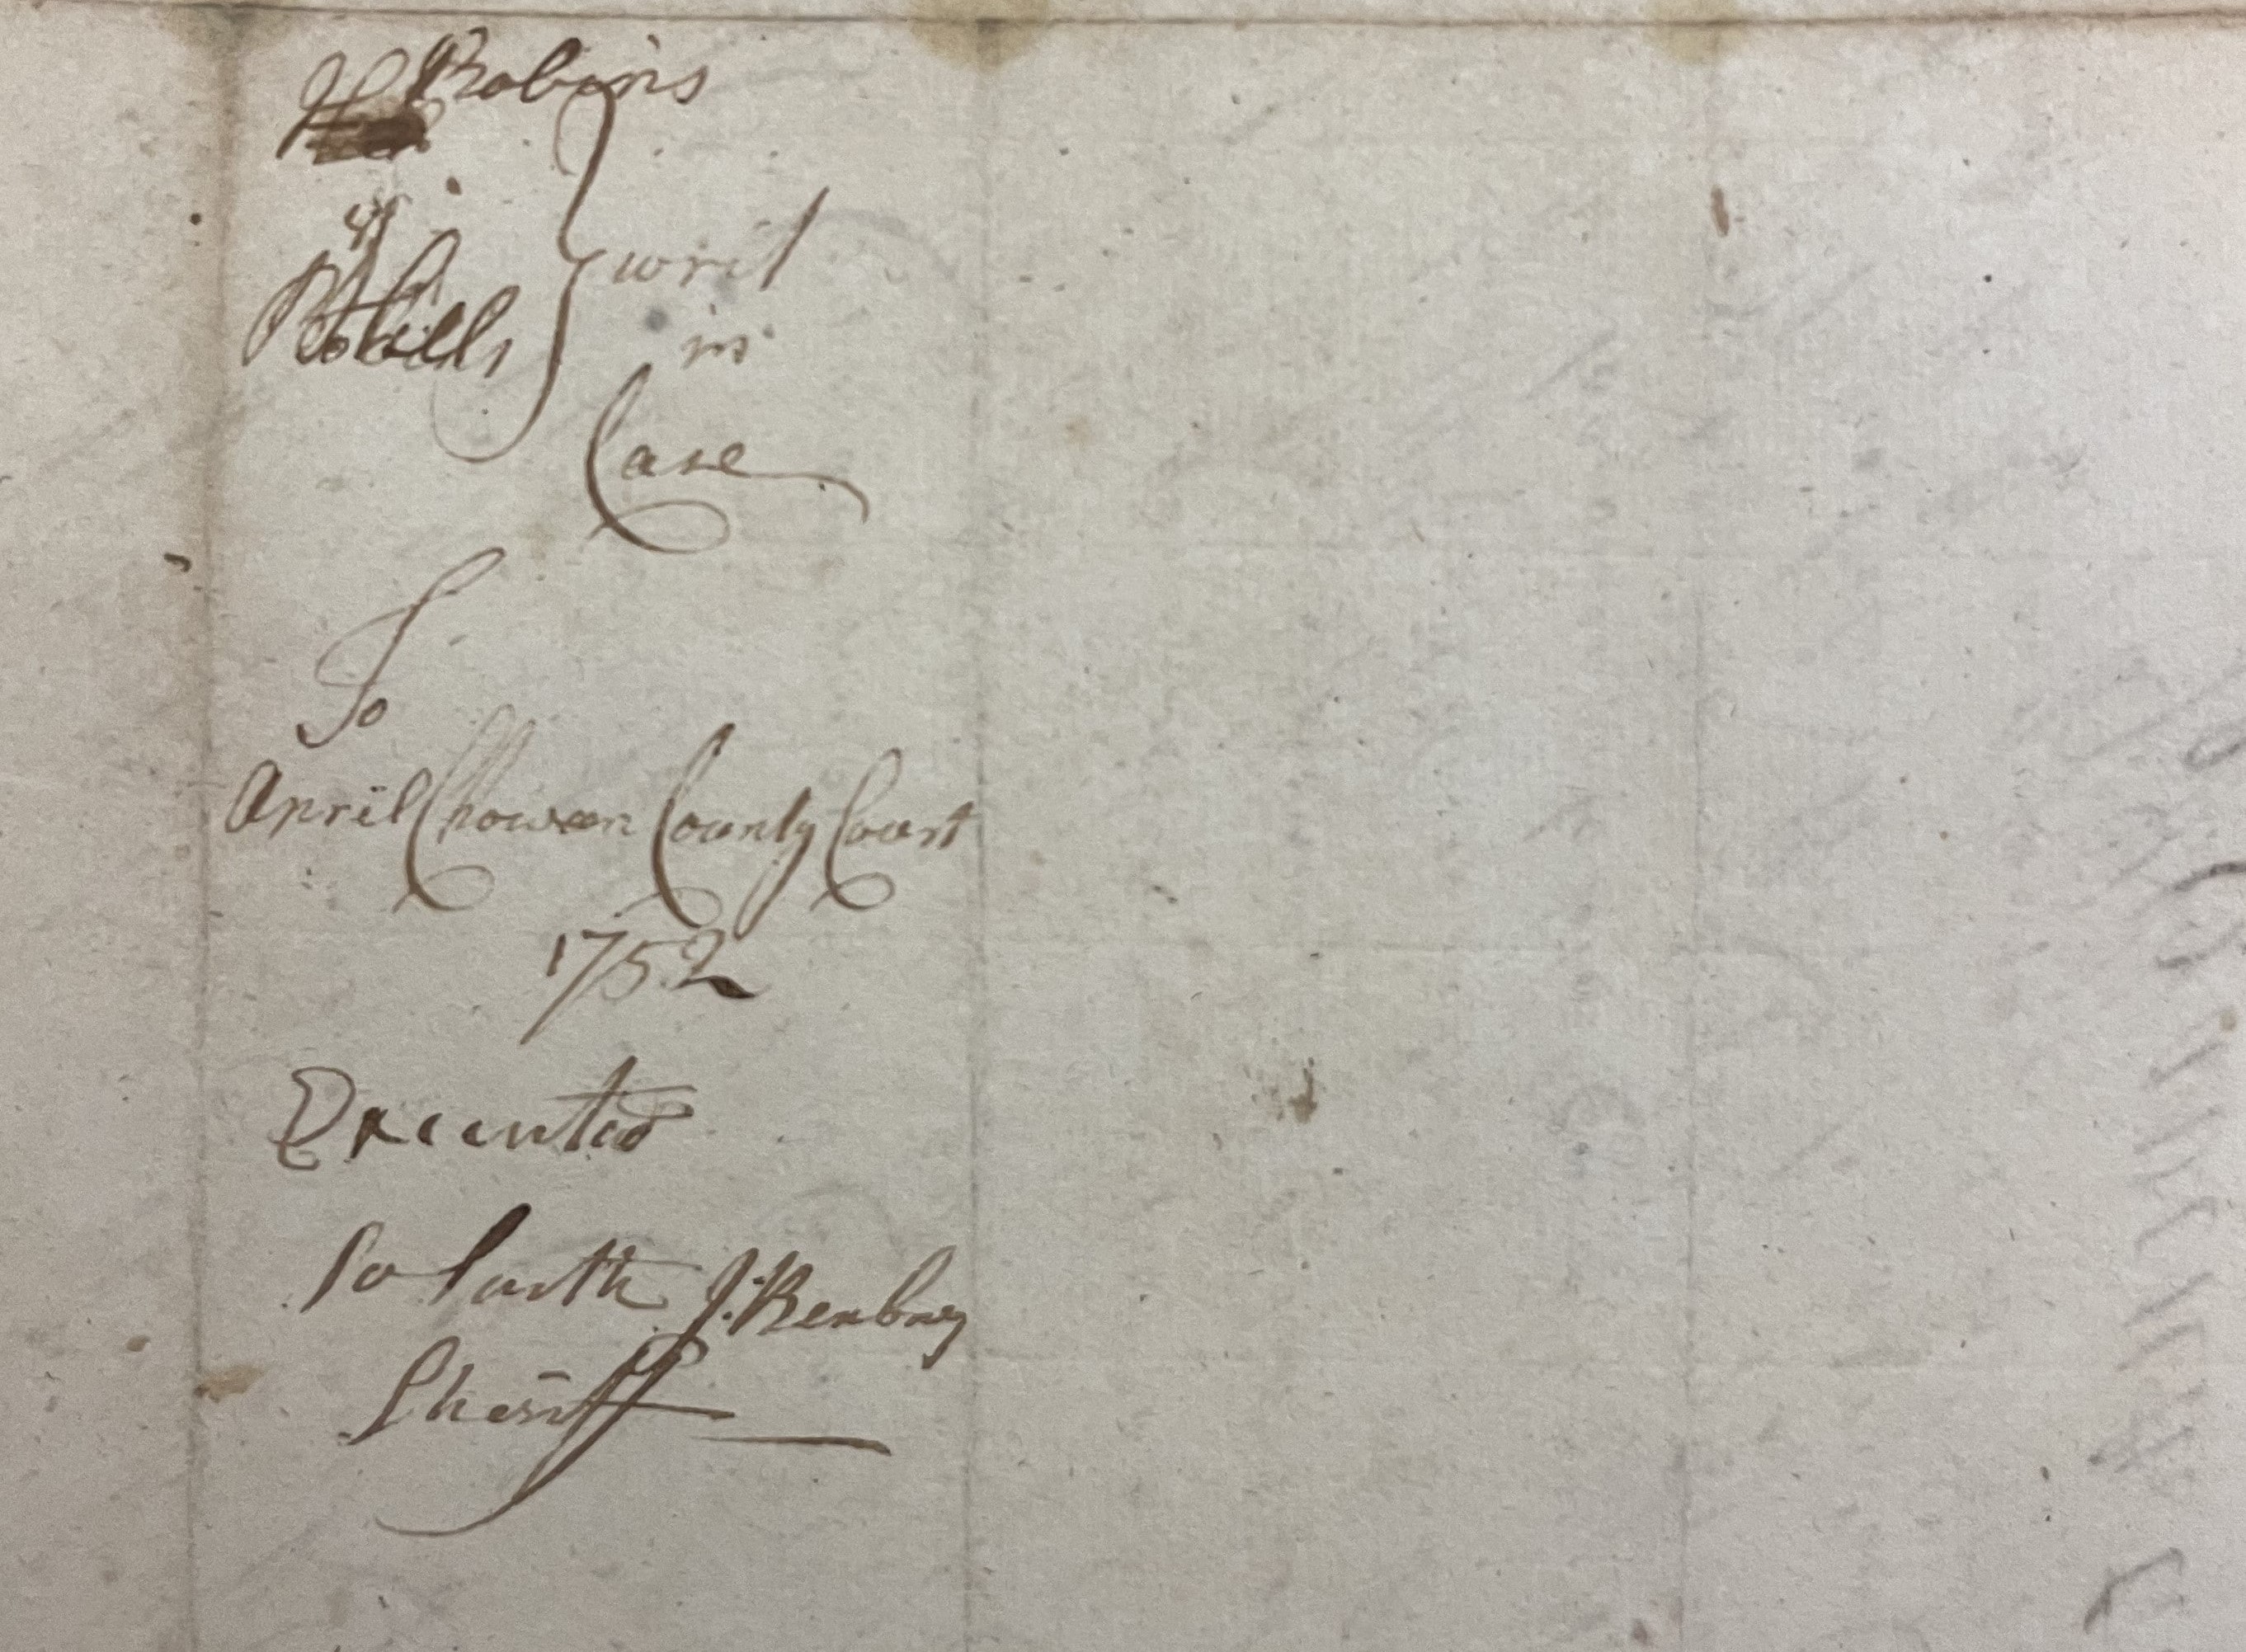 Robins
vs
writ
in
Case
To
April Chowan County Court
1752
Executed
So Saith J: Benbury
Sheriff